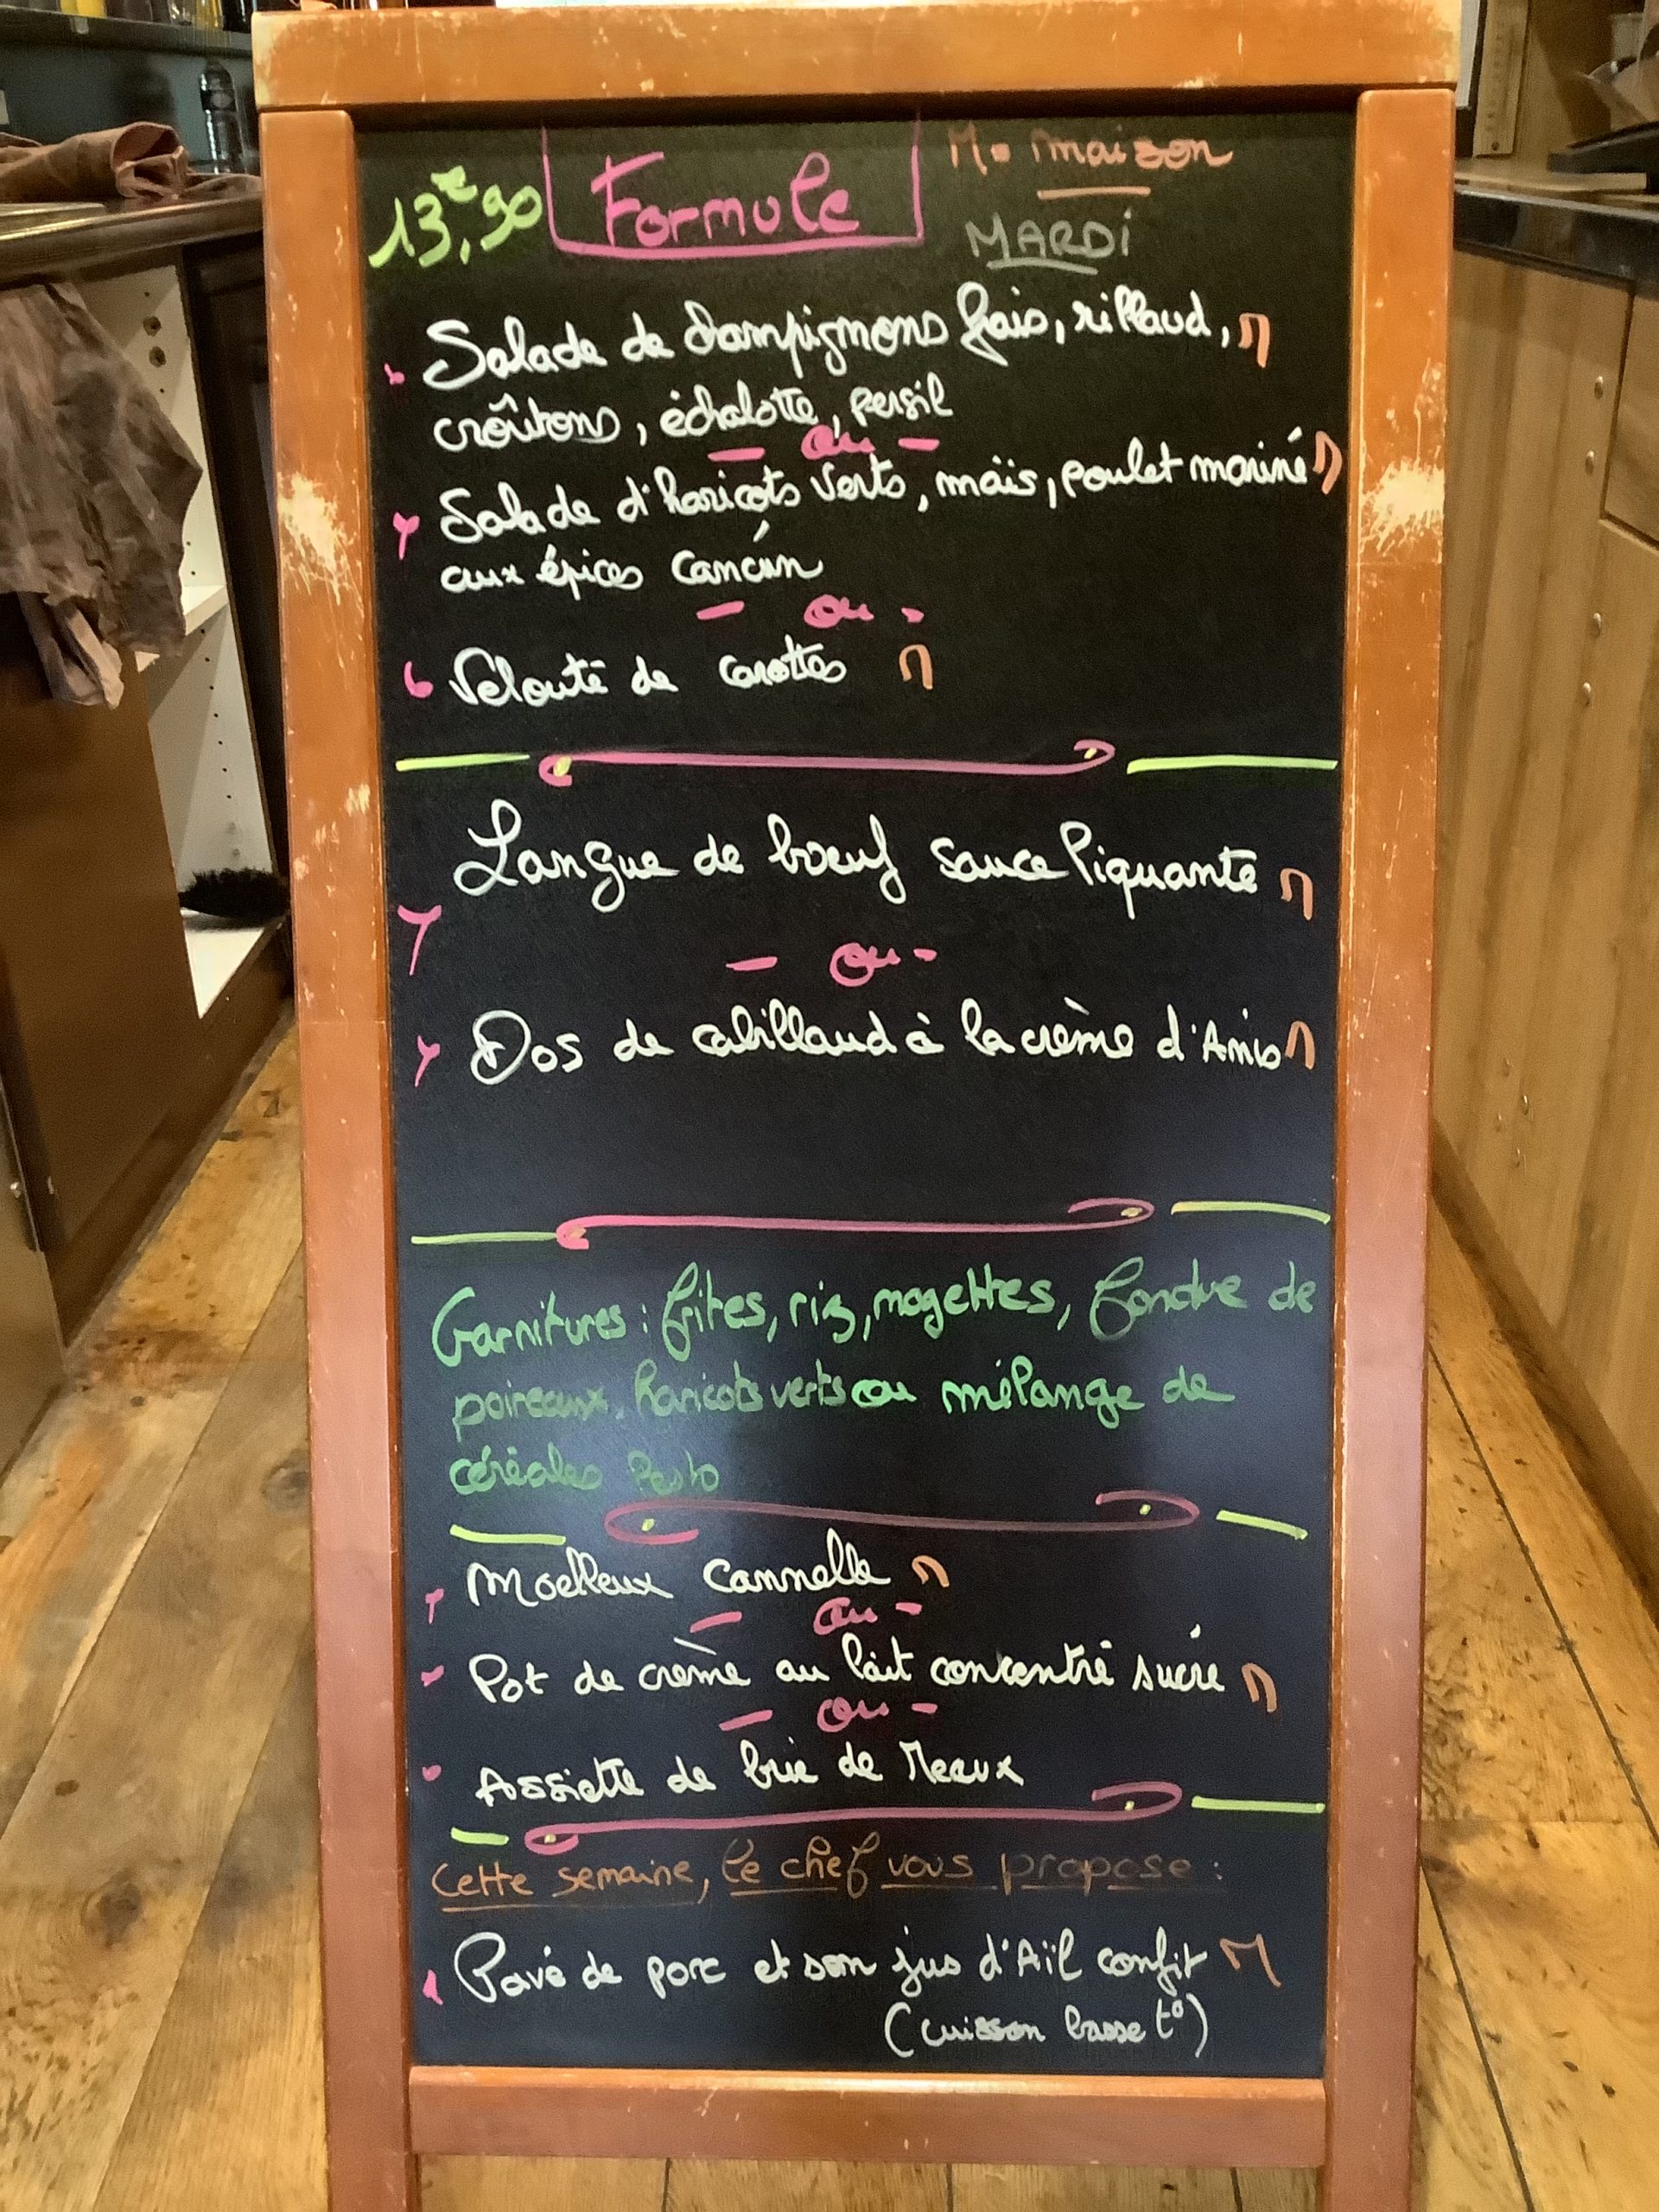 13€,90 Formule M = maison
MARDI
Salade de champignons frais, rillaud, M
croûtons, échalotte, persil
- ou -
Salade d'haricots verts, maïs, poulet mariné M
aux épices Cancún
- ou -
Velouté de carottes M
Langue de boeuf sauce Piquante M
- ou -
Dos de cabillaud à la crème d'Anis M
Garnitures : frites, riz, mogettes, fondue de
poireaux, haricots verts ou mélange de
céréales Pesto
Moelleux Cannelle M
- ou -
Pot de crème au lait concentré sucré M
- ou -
Assiette de brie de Meaux
Cette semaine, le chef vous propose :
Pavé de porc et son jus d'Aïl confit M
(cuisson basse t°)